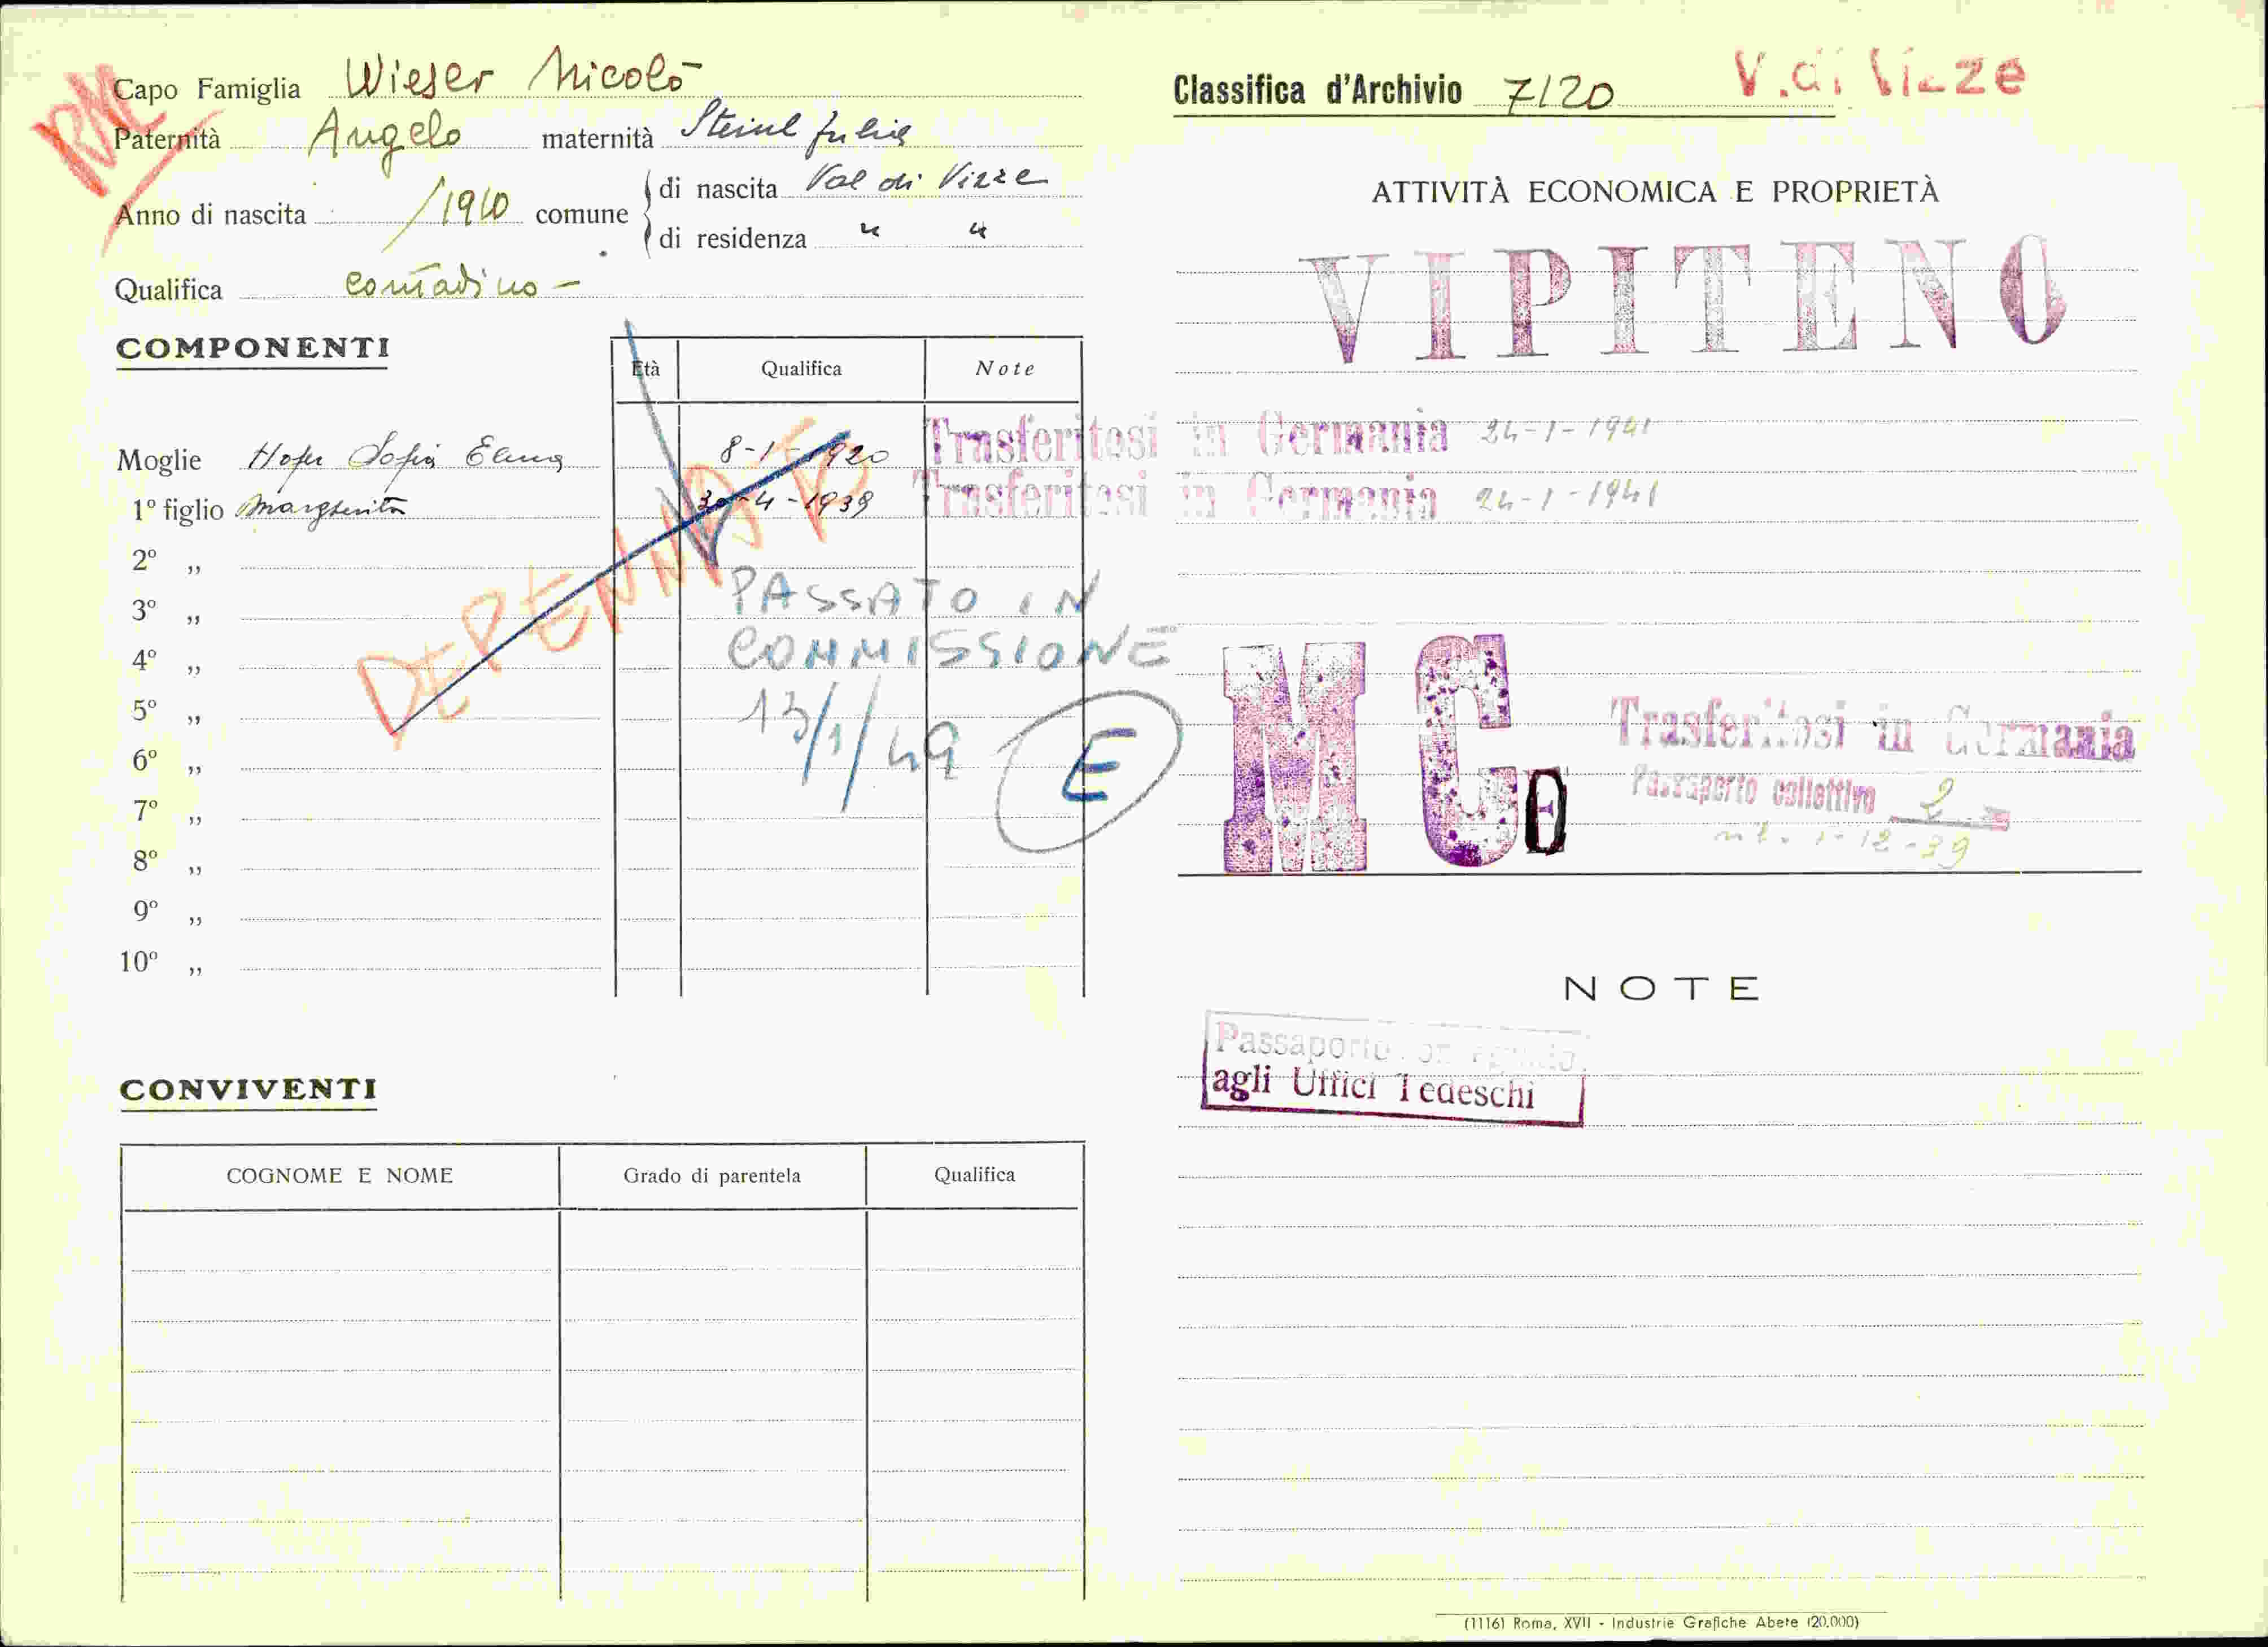 RM
Capo Famiglia Wieser Nicolò
Paternità Angelo maternità Steinl Julia
Anno di nascita /1910 comune di nascita Val di Vizze
di residenza " "
Qualifica contadino -
COMPONENTI
Età Qualifica Note
Moglie Hofer Sofia 8-1-1920 Trasferitosi in Germania 24-1-1941
1º figlio Margherita 30-4-1939 Trasferitasi in Germania 24-1-1941
2º „
3º „
4º „
5º „
6º „
7º „
8º „
9º „
10º „
DEPENNATO
PASSATO IN
COMMISSIONE
13/1/49
E
CONVIVENTI
COGNOME E NOME Grado di parentela Qualifica
Classifica d'Archivio 7/20 V. di Vizze
ATTIVITÀ ECONOMICA E PROPRIETÀ
VIPITENO
MCE
Trasferitosi in Germania
Passaporto collettivo 2
1-12-39
NOTE
Passaporto
agli Uffici Tedeschi
(1116) Roma, XVII - Industrie Grafiche Abete (20.000)